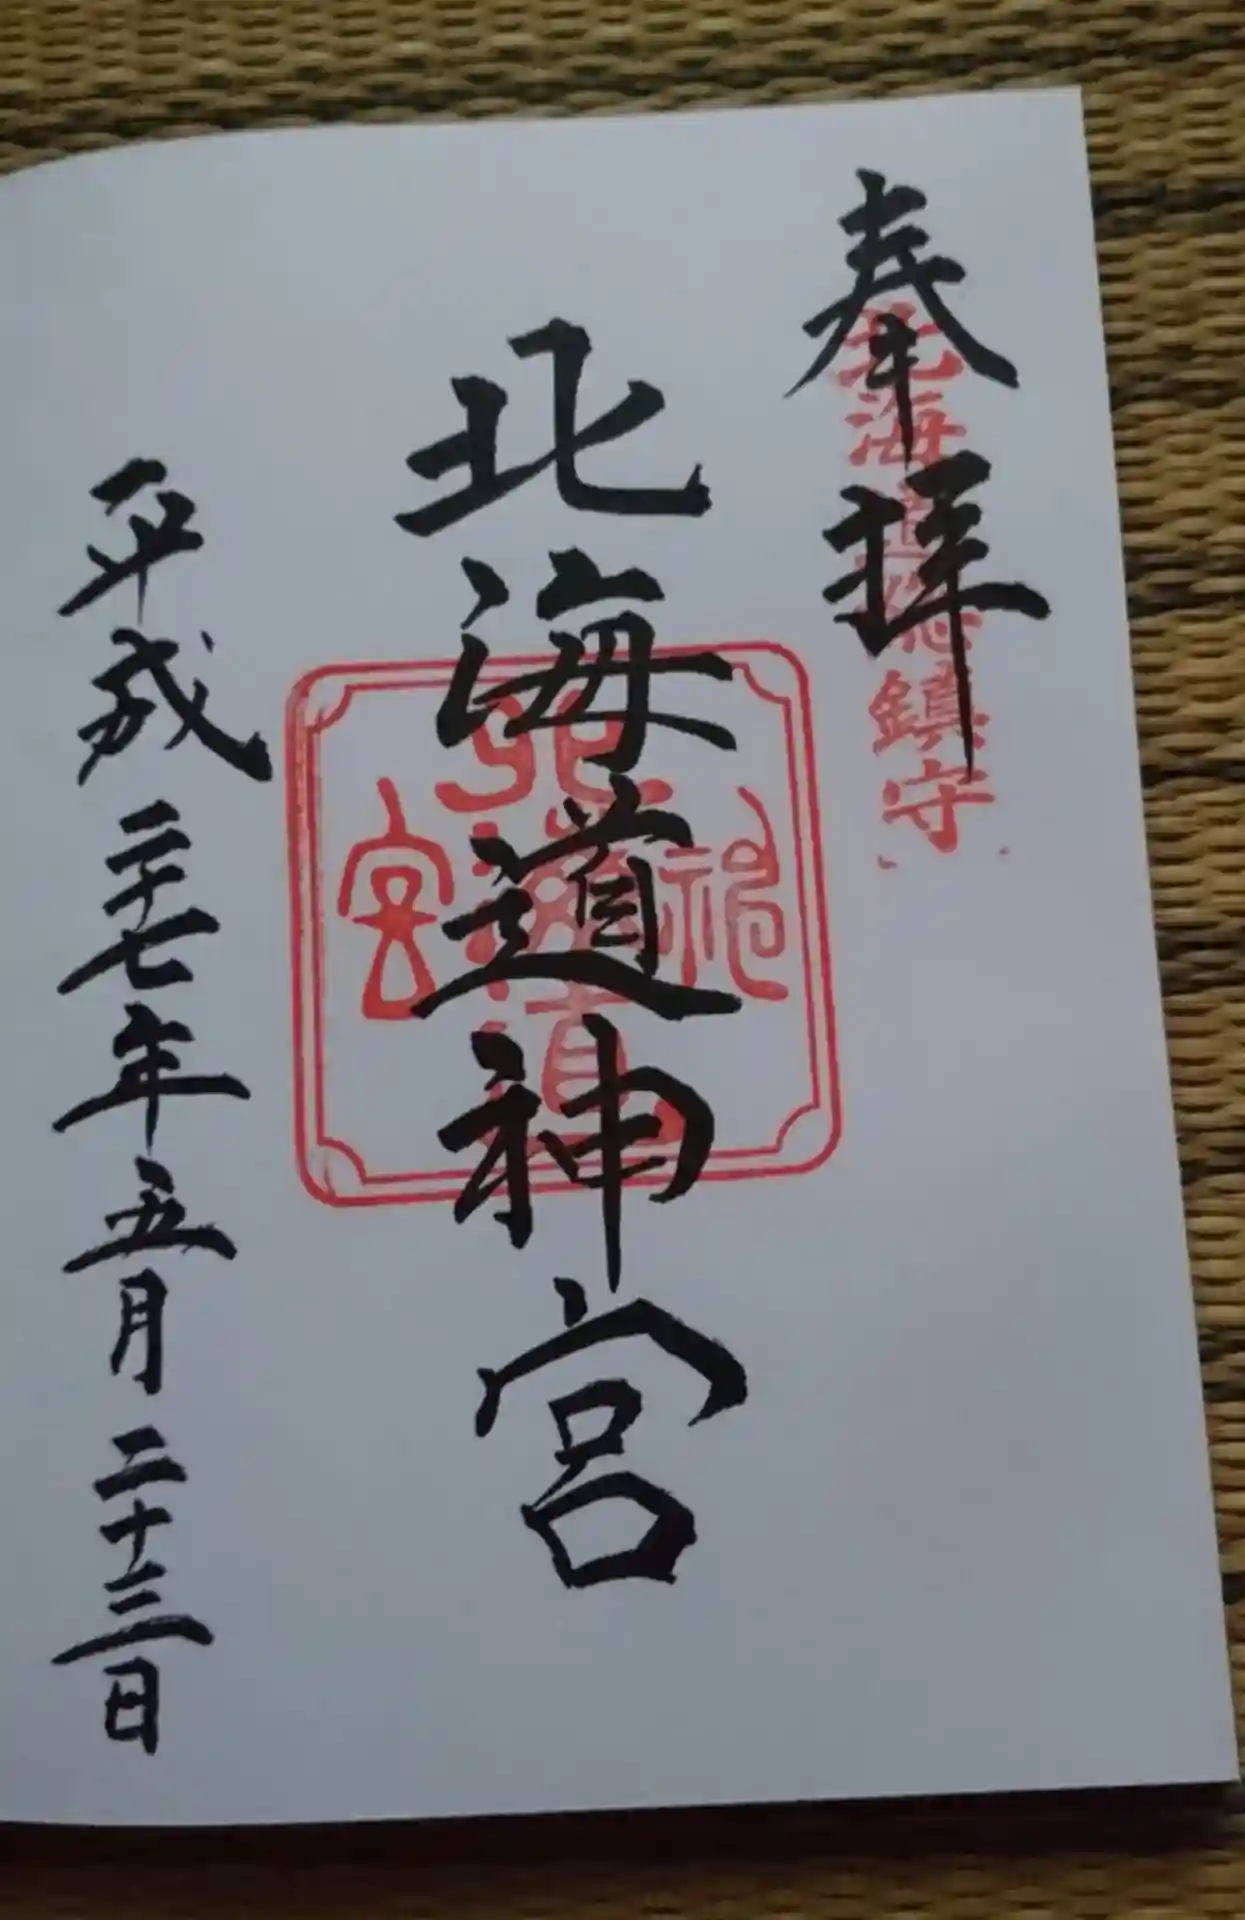 奉拝
北海道総鎮守
北海道神宮
平成二十七年五月二十三日